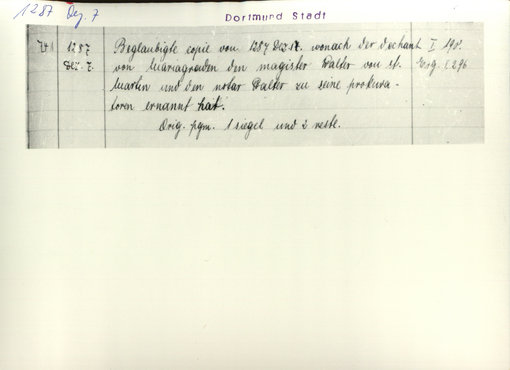 1287 Dez. 7
Dortmund Stadt
1287 Beglaubigte copie von 1287 Dez. wonach der dechant I 198.
Dez. 7. von Mariagraden den magister Walter von st. Erg. I 296
Martin und den notar Walter zu seine prokura-
toren ernannt hat.
Orig. pgm. 1 siegel und 2 reste.